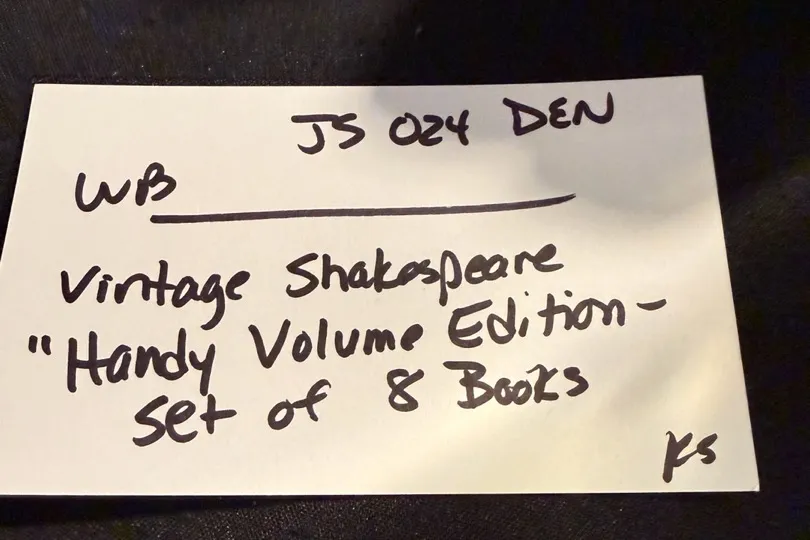 JS 024 DEN
WB
Vintage Shakespeare
"Handy Volume Edition-
set of 8 Books
KS